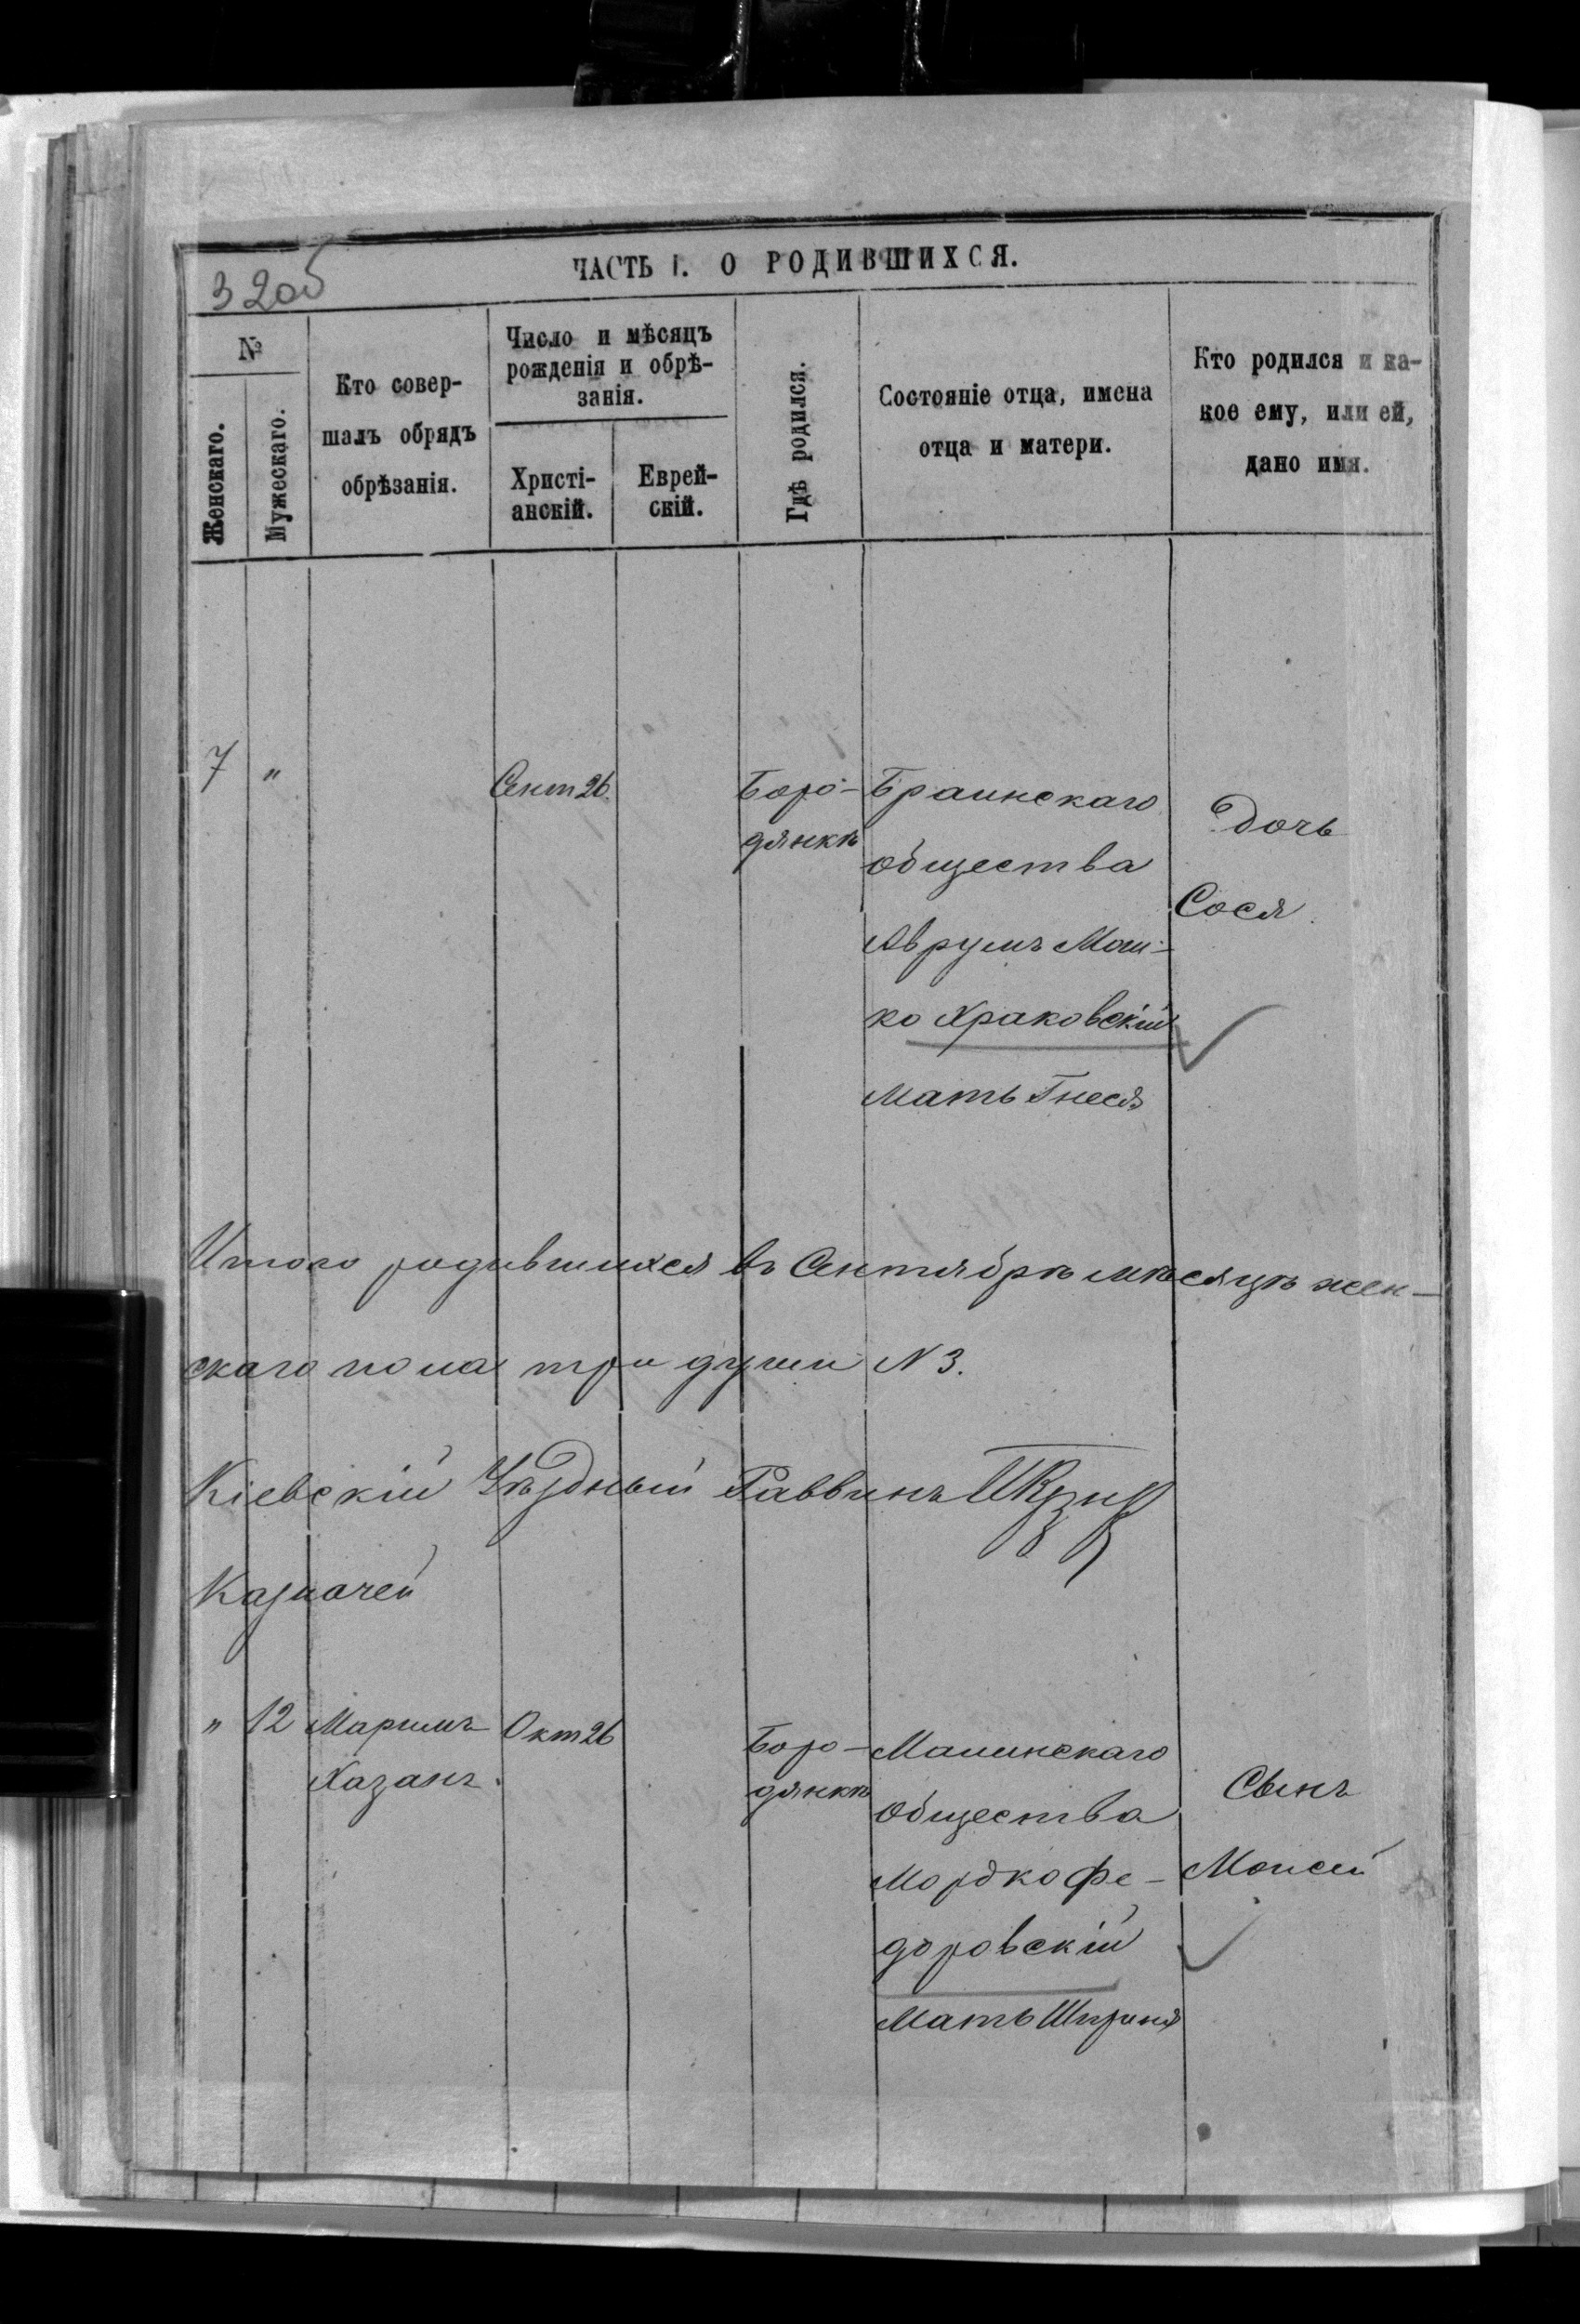 320б
ЧАСТЬ I. О РОДИВШИХСЯ.
№
Женскаго.
Мужескаго.
Кто совер-
шалъ обрядъ
обрѣзанія.
Число и мѣсяцъ
рожденія и обрѣ-
занія.
Христі-
анскій.
Еврей-
скій.
Гдѣ родился.
Состояніе отца, имена
отца и матери.
Кто родился и ка-
кое ему, или ей,
дано имя.
7 " Сент 26.
Боро-
дянкѣ
общества
Аврумъ Мош-
ко Краковскій
мать Гнеся
дочь
Сося
Итого родившихся въ Сентябрѣ мѣсяцѣ жен-
скаго пола три души N 3.
Кіевскій Уѣздный Раввинъ
Казначей
" 12
Хазанъ.
Окт 26
Боро-
дянкѣ
Малинскаго
общества
Мордко Фе-
доровскій
Мать
Сынъ
Моисей